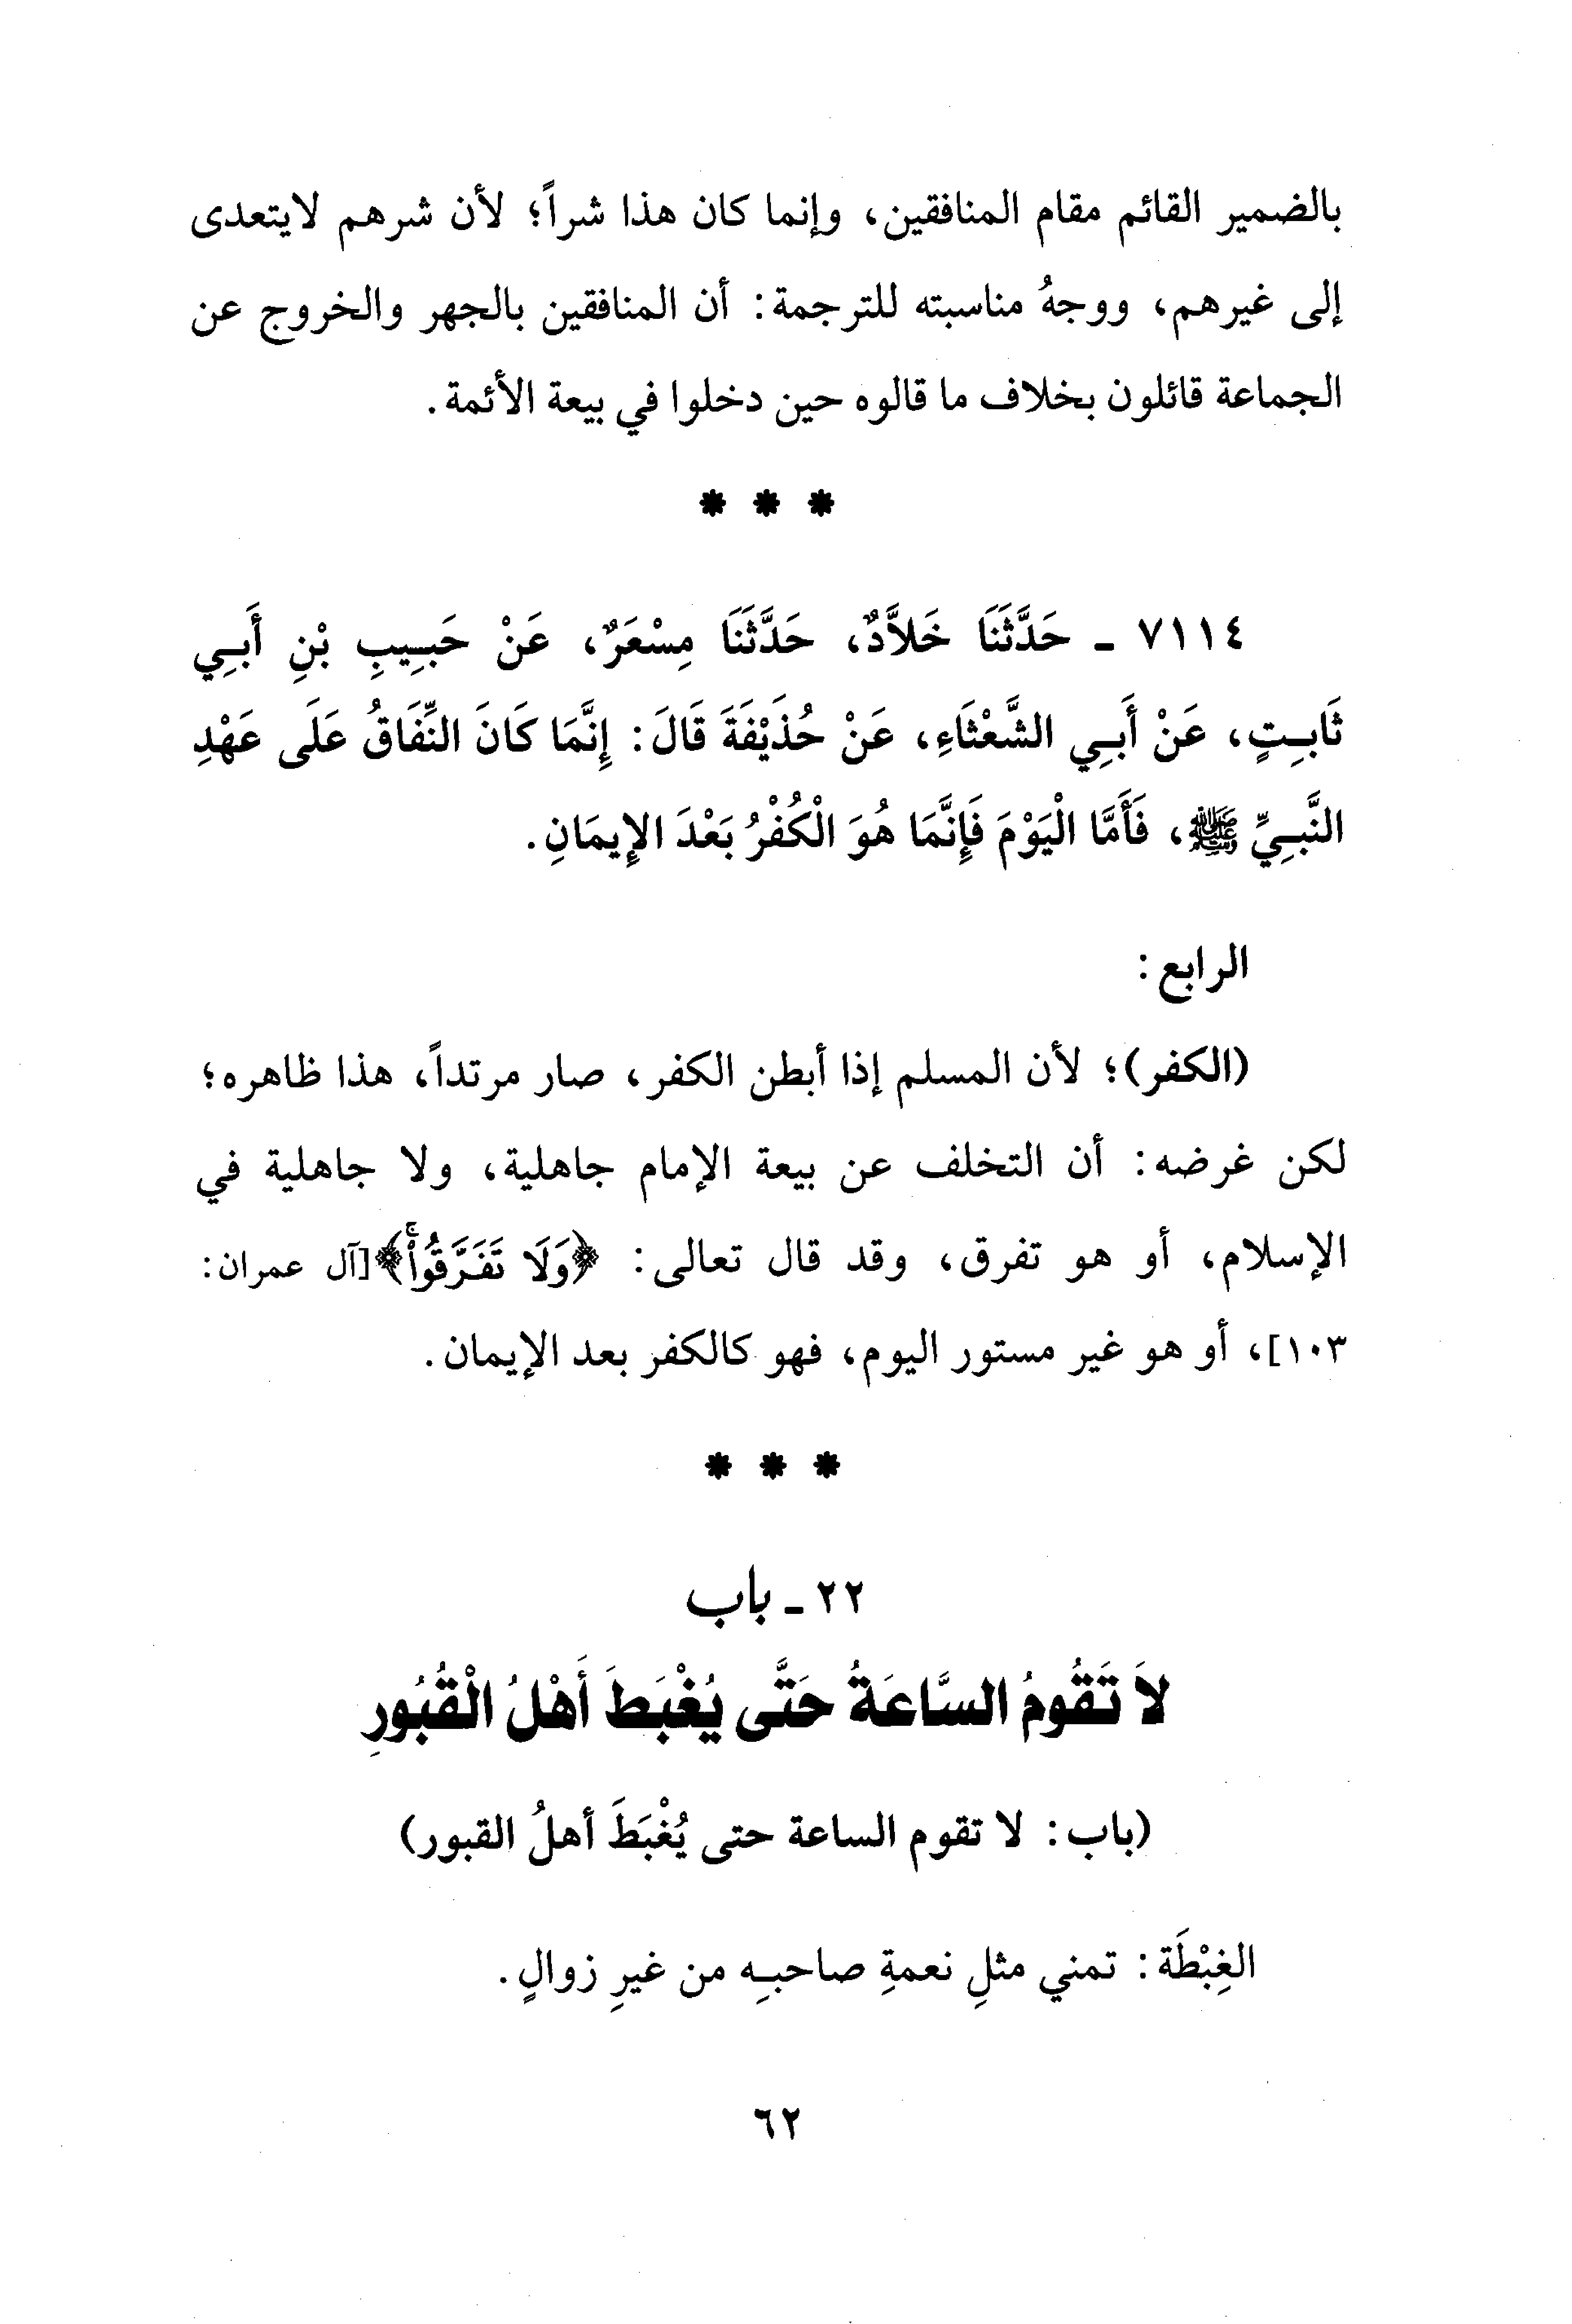 بالضمير القائم مقام المنافقين، وإنما كان هذا شراً؛ لأن شرهم لايتعدى
إلى غيرهم، ووجهُ مناسبته للترجمة: أن المنافقين بالجهر والخروج عن
الجماعة قائلون بخلاف ما قالوه حين دخلوا في بيعة الأئمة.
* * *
٧١١٤ - حَدَّثَنَا خَلاَّدٌ، حَدَّثَنَا مِسْعَرٌ، عَنْ حَبِيبِ بْنِ أَبِي
ثَابِتٍ، عَنْ أَبِي الشَّعْثَاءِ، عَنْ حُذَيْفَةَ قَالَ: إِنَّمَا كَانَ النِّفَاقُ عَلَى عَهْدِ
النَّبِيِّ ﷺ، فَأَمَّا الْيَوْمَ فَإِنَّمَا هُوَ الْكُفْرُ بَعْدَ الإِيمَانِ.
الرابع:
(الكفر)؛ لأن المسلم إذا أبطن الكفر، صار مرتداً، هذا ظاهره؛
لكن غرضه: أن التخلف عن بيعة الإمام جاهلية، ولا جاهلية في
الإسلام، أو هو تفرق، وقد قال تعالى: ﴿وَلَا تَفَرَّقُواْۚ﴾[آل عمران:
١٠٣]، أو هو غير مستور اليوم، فهو كالكفر بعد الإيمان.
* * *
٢٢ - باب
لاَ تَقُومُ السَّاعَةُ حَتَّى يُغْبَطَ أَهْلُ الْقُبُورِ
(باب: لا تقوم الساعة حتى يُغْبَطَ أهلُ القبور)
الغِبْطَة: تمني مثلِ نعمةِ صاحبِه من غيرِ زوالٍ.
٦٢